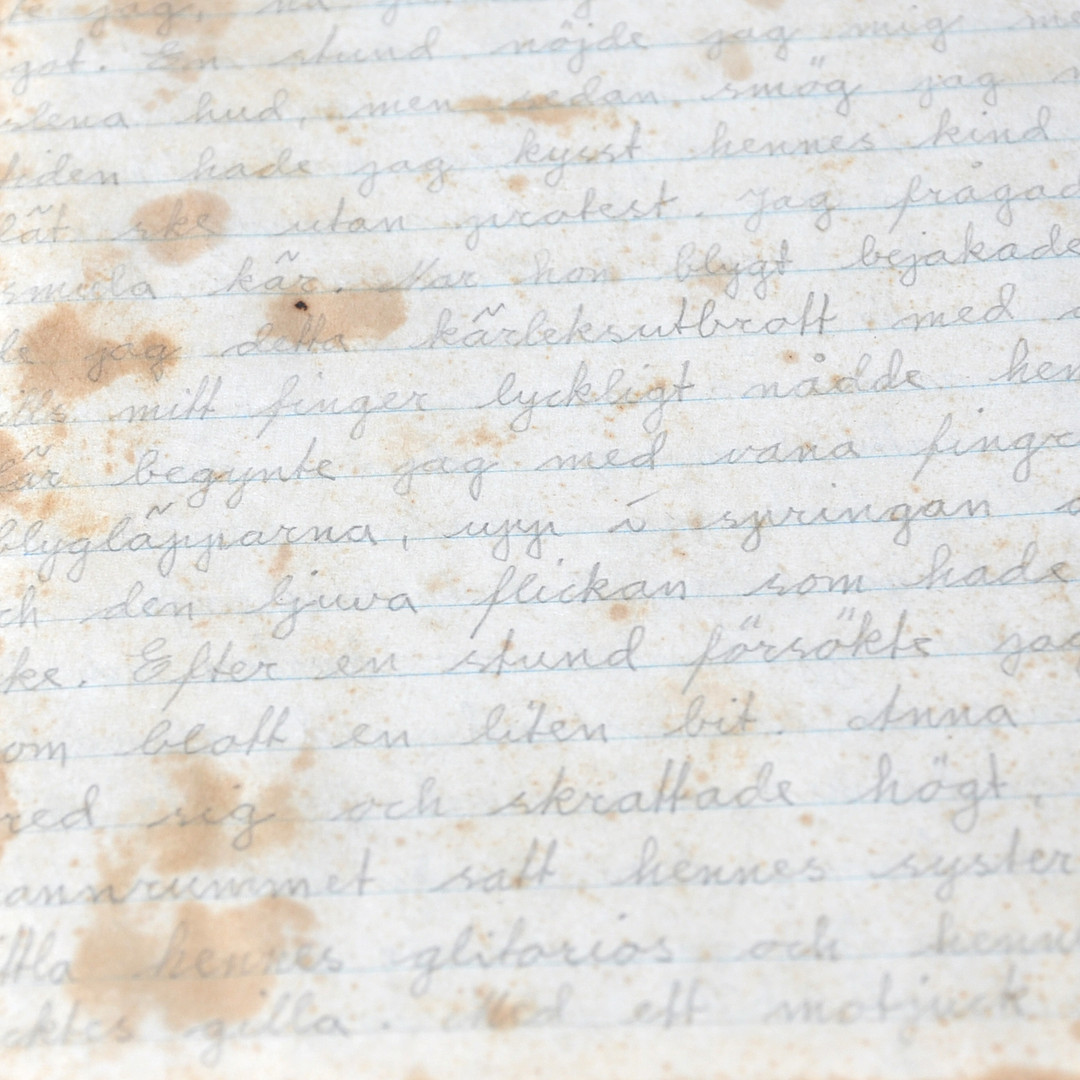 jag, na
got. En stund nöjde jag mig me
slena hud, men sedan smög jag
tiden hade jag kysst hennes kind
lät ske utan protest. Jag frågad
smula kär. När hon blygt bejakade
de jag detta kärleksutbrott med
ills mitt finger lyckligt nådde hen
är begynte jag med vana fingr
blygläpparna, upp i springan
ch den ljuva flickan som hade
ke. Efter en stund försökte jag
om blott en liten bit. Anna
red sig och skrattade högt.
annrummet satt hennes syster
ttla hennes glitorios och henn
cktes gilla. Med ett motjuck